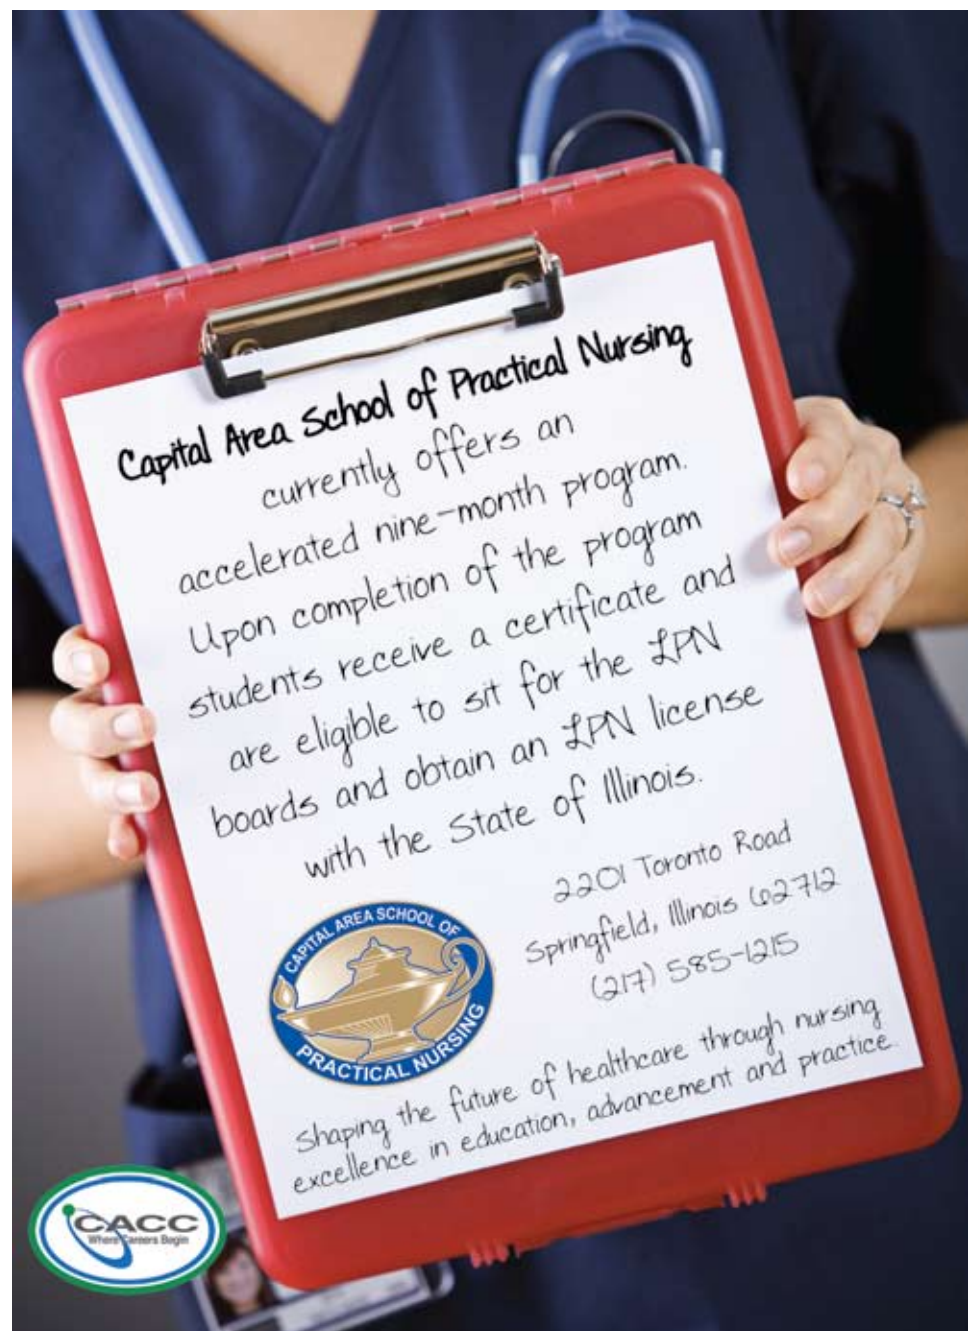 Capital Area School of Practical Nursing
currently offers an
accelerated nine-month program.
Upon completion of the program
students receive a certificate and
are eligible to sit for the LPN
boards and obtain an LPN license
with the State of Illinois.
2201 Toronto Road
Springfield, Illinois 62712
(217) 585-1215
CAPITAL AREA SCHOOL OF
PRACTICAL NURSING
Shaping the future of healthcare through nursing
excellence in education, advancement and practice.
CACC
Where Careers Begin